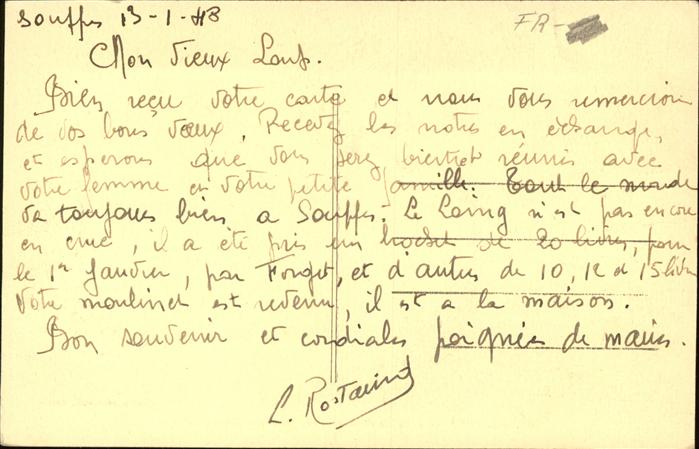 Souppes 13-1-48
FR-
Mon Vieux Loup.
Bien reçu votre carte et nous vous remercions
de vos bons vœux. Recevez les notres en échange,
et esperons que vous serez bientot réunis avec
votre femme et votre petite famille. Tout le monde
va toujours bien a Souppes. Le Loing n'est pas encore
en crue, il a été pris un brochet de 20 livres, pour
le 1er Janvier, par Forget, et d'autres de 10, 12 et 15 livres
Votre moulinet est revenu, il est a la maison.
Bon souvenir et cordiales poignées de mains.
L. Rostaing